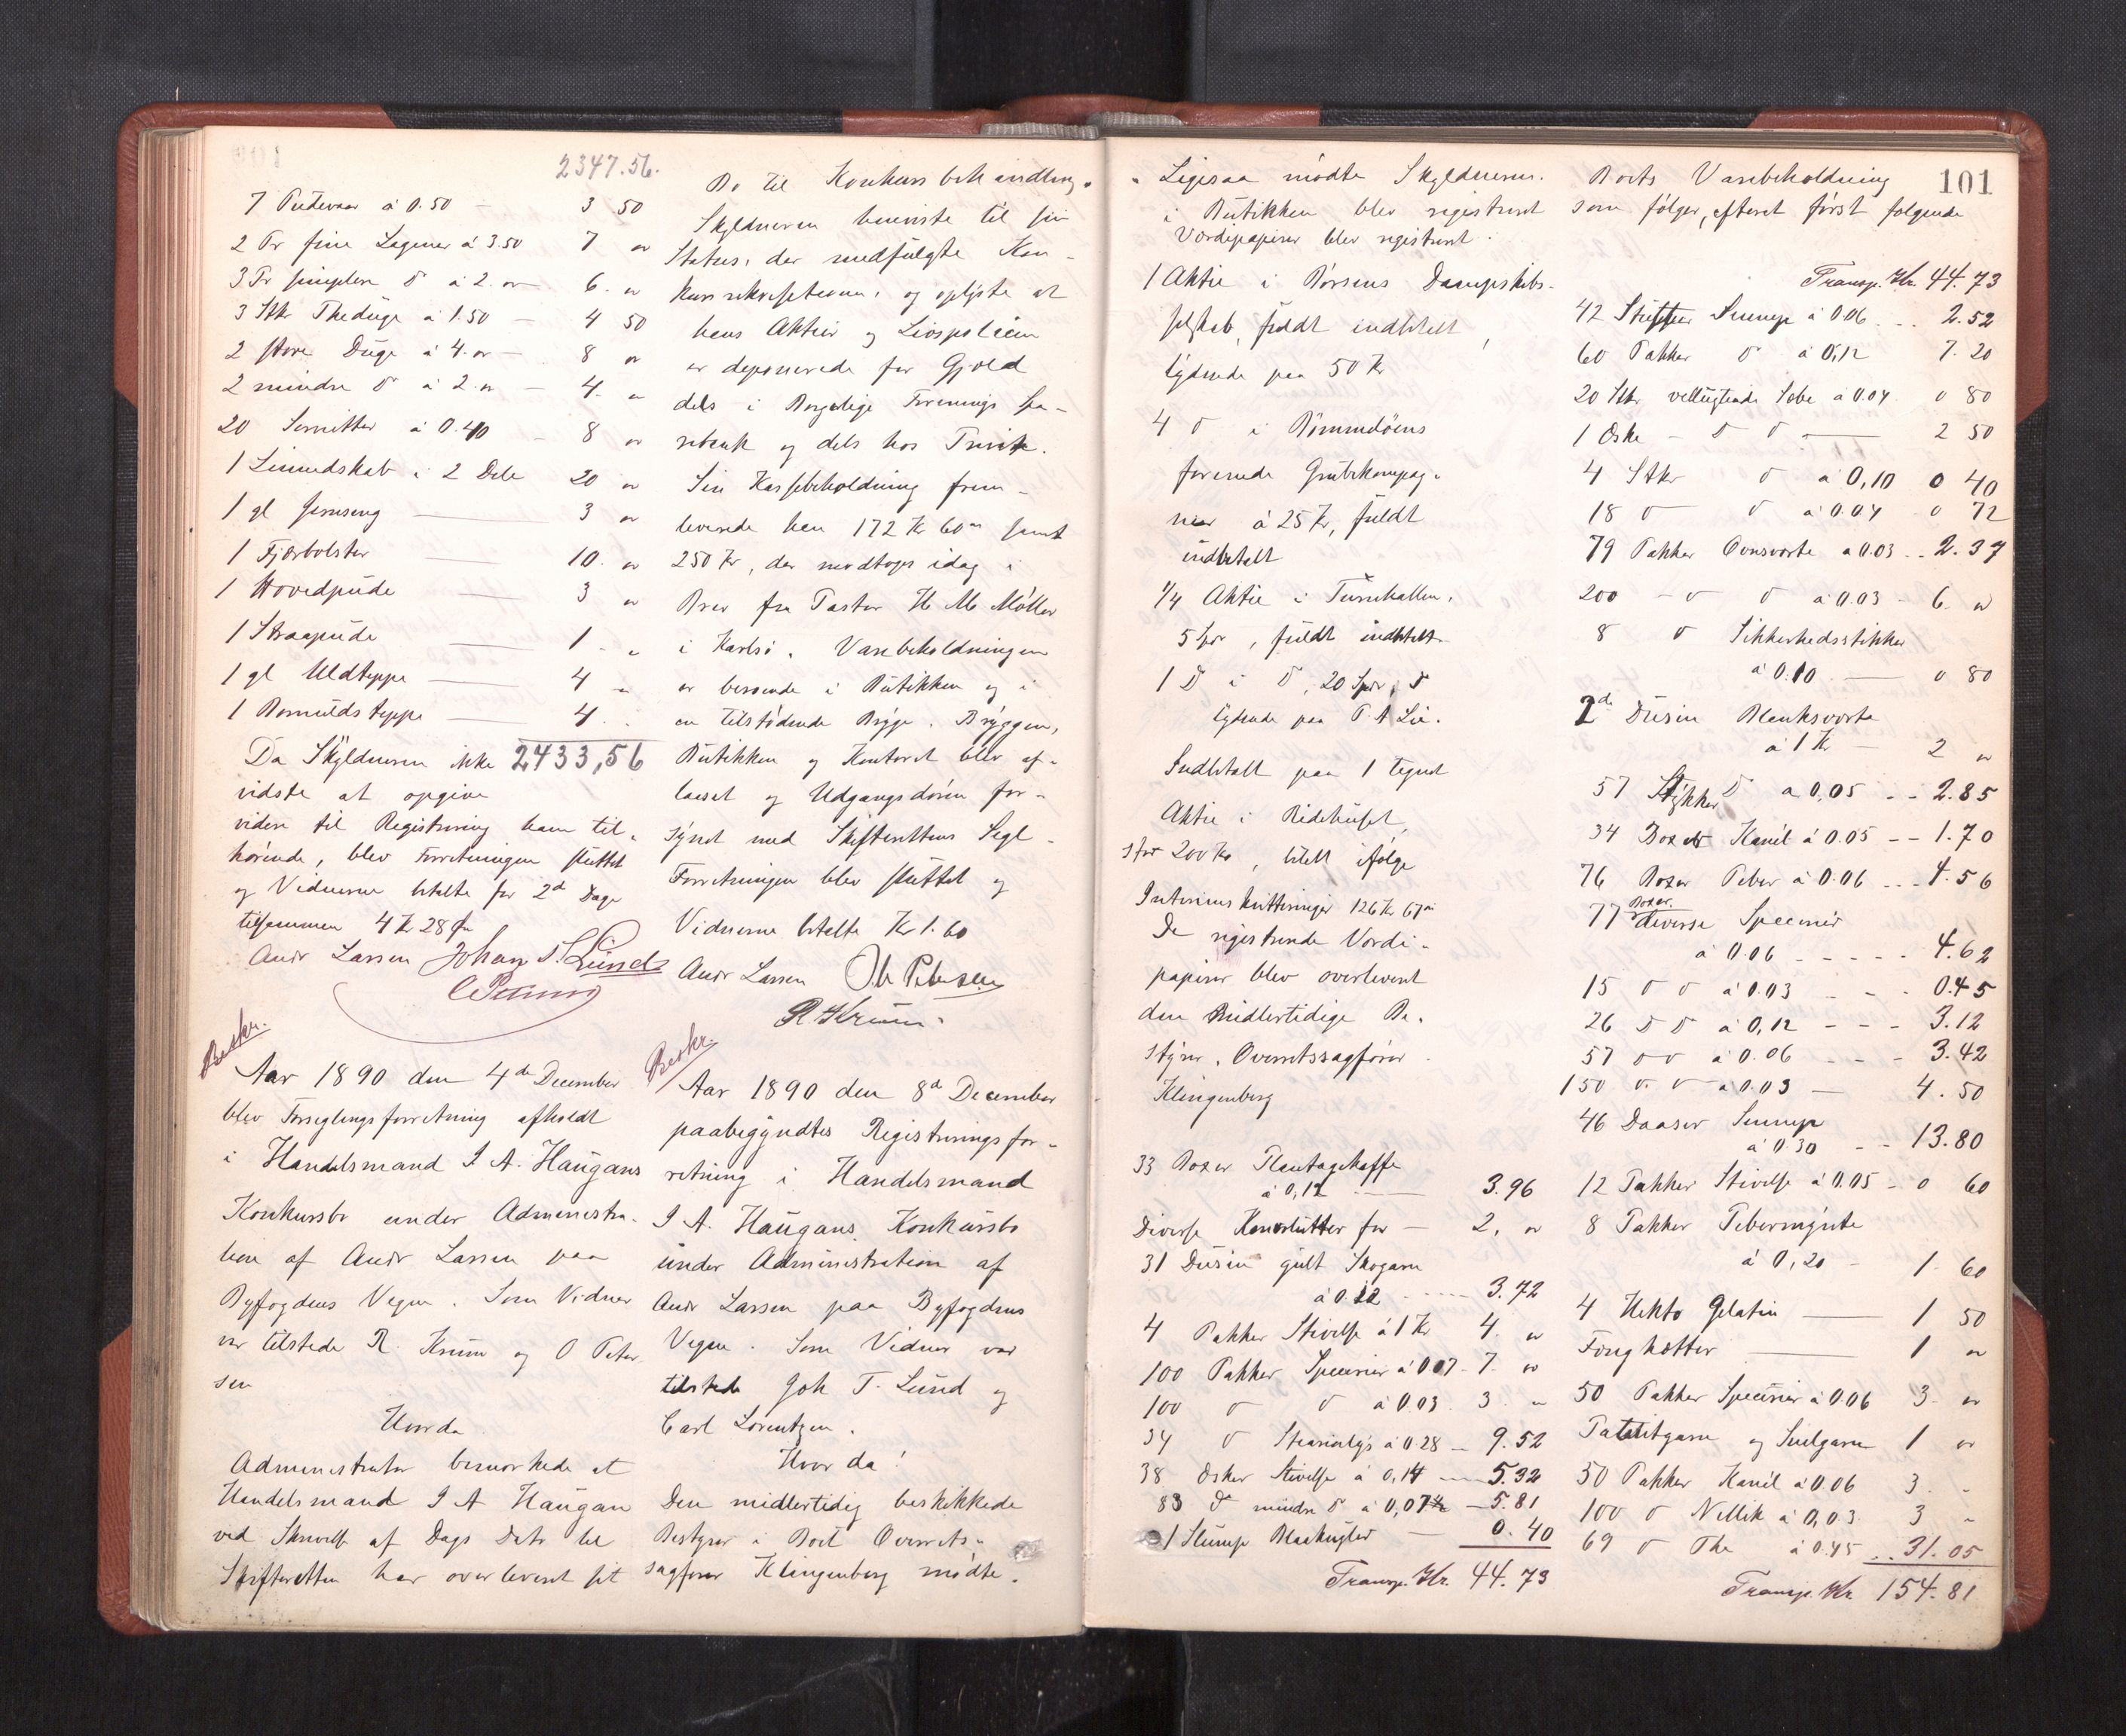 2347.56.
7 Pudevaar à 0.50 - 3 50
2 Pr fine Lagener à 3.50 7 "
3 Pr simplere d à 2. " 6. "
3 Stkr Theduge à 1.50 - 4 50
2 store Duge à 4. " - 8 "
2 mindre d à 2. " - 4. "
20 Servietter à 0.40 - 8 "
1 Linnedskab i 2 Dele 20 "
1 gl Jernseng 3 "
1 Fjærbolster 10. "
1 Hovedpude 3 "
1 Straapude 1 - "
1 gl Uldteppe 4 - "
1 Bomulds teppe 4. "
Da Skyldneren ikke 2433,56
vidste at opgive
videre til Registrering ham til-
hørende, blev Forretningen sluttet
og Vidnerne betalte for 2de Dage
tilsammen 4 Kr 28 Øre
Andr Larsen Johan T. Lund

Beskr.
Aar 1890 den 4de December
blev Forseglingsforretning afholdt
i Handelsmand I A. Haugans
Konkursbo under Administra-
tion af Andr Larsen paa
Byfogdens Vegne. Som Vidner
var tilstede R. Krum og O Peter-
sen
Hvorda
Administrator bemærkede at
Handelsmand I A Haugan
ved Skrivelse af Dags Dato til
Skifteretten har overleveret sit
Bo til Konkursbehandling.
Skyldneren henviste til sin
Status, der medfulgte Kon-
kursrekvisitionen, og oplyste at
hans Aktier og Livspolicen
er deponerede for Gjæld
dels i Borgelige Forenings Spa-
rebank og dels hos Privat.
Sin Kassebeholdning frem-
leverede han 172 Kr 60 " samt
250 Kr, der modtoges idag i
Brev fra Pastor H M Møller
i Karlsø. Varebeholdningen
er beroende i Butikken og i
en tilstødende Brygge. Bryggen,
Butikken og Kontoret blev af-
laaset og Udgangsdøren for-
synet med Skifterettens Segl -
Forretningen blev sluttet og
Vidnerne betalte Kr 1.60
Andr Larsen Ole Petersen
R Krum.
Beskr.
Aar 1890 den 8de December
paabegyndtes Registreringsfor-
retning i Handelsmand
I A. Haugans Konkursbo
under Administration af
Andr Larsen paa Byfogdens
Vegne. Som Vidner var
tilstede Joh T. Lund og
Carl Lorentzen.
Hvor da!
Den midlertidig beskikkede
Bestyrer i Boet Overrets-
sagfører Klingenberg mødte.
101
" Ligesaa mødte Skyldneren.
i Butikken blev registreret
Værdipapirer blev registreret.
1 Aktie i Børsens Dampskibs-
selskab, fuldt indbetalt,
lydende paa 50 Kr
4 d i Rømmdøens
forenede Grubekompag-
nier à 25 Kr, fuldt
indbetalt
1/4 Aktie i Turnhallen,
5 Spd, fuldt indbetalt
1 d i d, 20 Spd, d
lydende paa P. A Lie.
Indbetalt paa 1 tegnet
Aktie i Ridehuset,
stor 200 Kr, betalt ifølge
Interimskvitteringer 126 Kr 67 "
De registrerede Værdi-
papirer blev overleveret
den Midlertidige Be-
styrer, Overretssagfører
Klingenberg
33 Boxer Plantagekaffe
à 0,12 3.96
Diverse for - 2. "
31 Dusin gult Skogarn
à 0.12 3.72
4 Pakker Stivelse à 1 Kr 4. "
100 Pakker Specerier à 0.07 - 7. "
100 d d à 0.03 3 "
34 d Stearinlys à 0.28 - 9.52
38 Æsker Stivelse à 0,14 5.32
83 d mindre d à 0,07 - 5.81
1 Slump Blaakugler 0.40
Transp. Kr. 44.73
Boets Varebeholdning
som følger, efteret først følgende
Transp. Kr. 44.73
42 Sennep à 0.06 2.52
60 Pakker d à 0,12 7.20
20 Stkr vellugtende Sæbe à 0.04 0 80
1 Æske - d d 2 50
4 Stkr d à 0,10 0 40
18 d d à 0.04 0 72
79 Pakker Ovnsværte à 0.03 2.37
200 - d d à 0.03 - 6. "
8 d Sikkerhedsstikker
à 0.10 0 80
2de Dusin Blanksværte
à 1 Kr - 2 "
57 Stykker d à 0,05 2.85
34 Boxer Kanél à 0.05 1.70
76 Boxer Peber à 0.06 4.56
77 Boxer diverse Specerier
à 0.06 4.62
15 d d à 0.03 0.45
26 d d à 0,12 3.12
57 d d à 0.06 3.42
150 d d à 0.03 - 4.50
46 Daaser Sennep
à 0.30 13.80
12 Pakker Stivelse à 0.05 - 0 60
8 Pakker Pebermynte
à 0,20 - 1. 60
4 Hekto Gelatin 1 50
Fenghætter 1 "
50 Pakker Specerier à 0.06 3. "
Patentgarn og Seilgarn 1 "
50 Pakker Kanél à 0.06 3. "
100 d Nellik à 0,03. 3 "
69 d The à 0.45 31.05
Transp. Kr 154.81